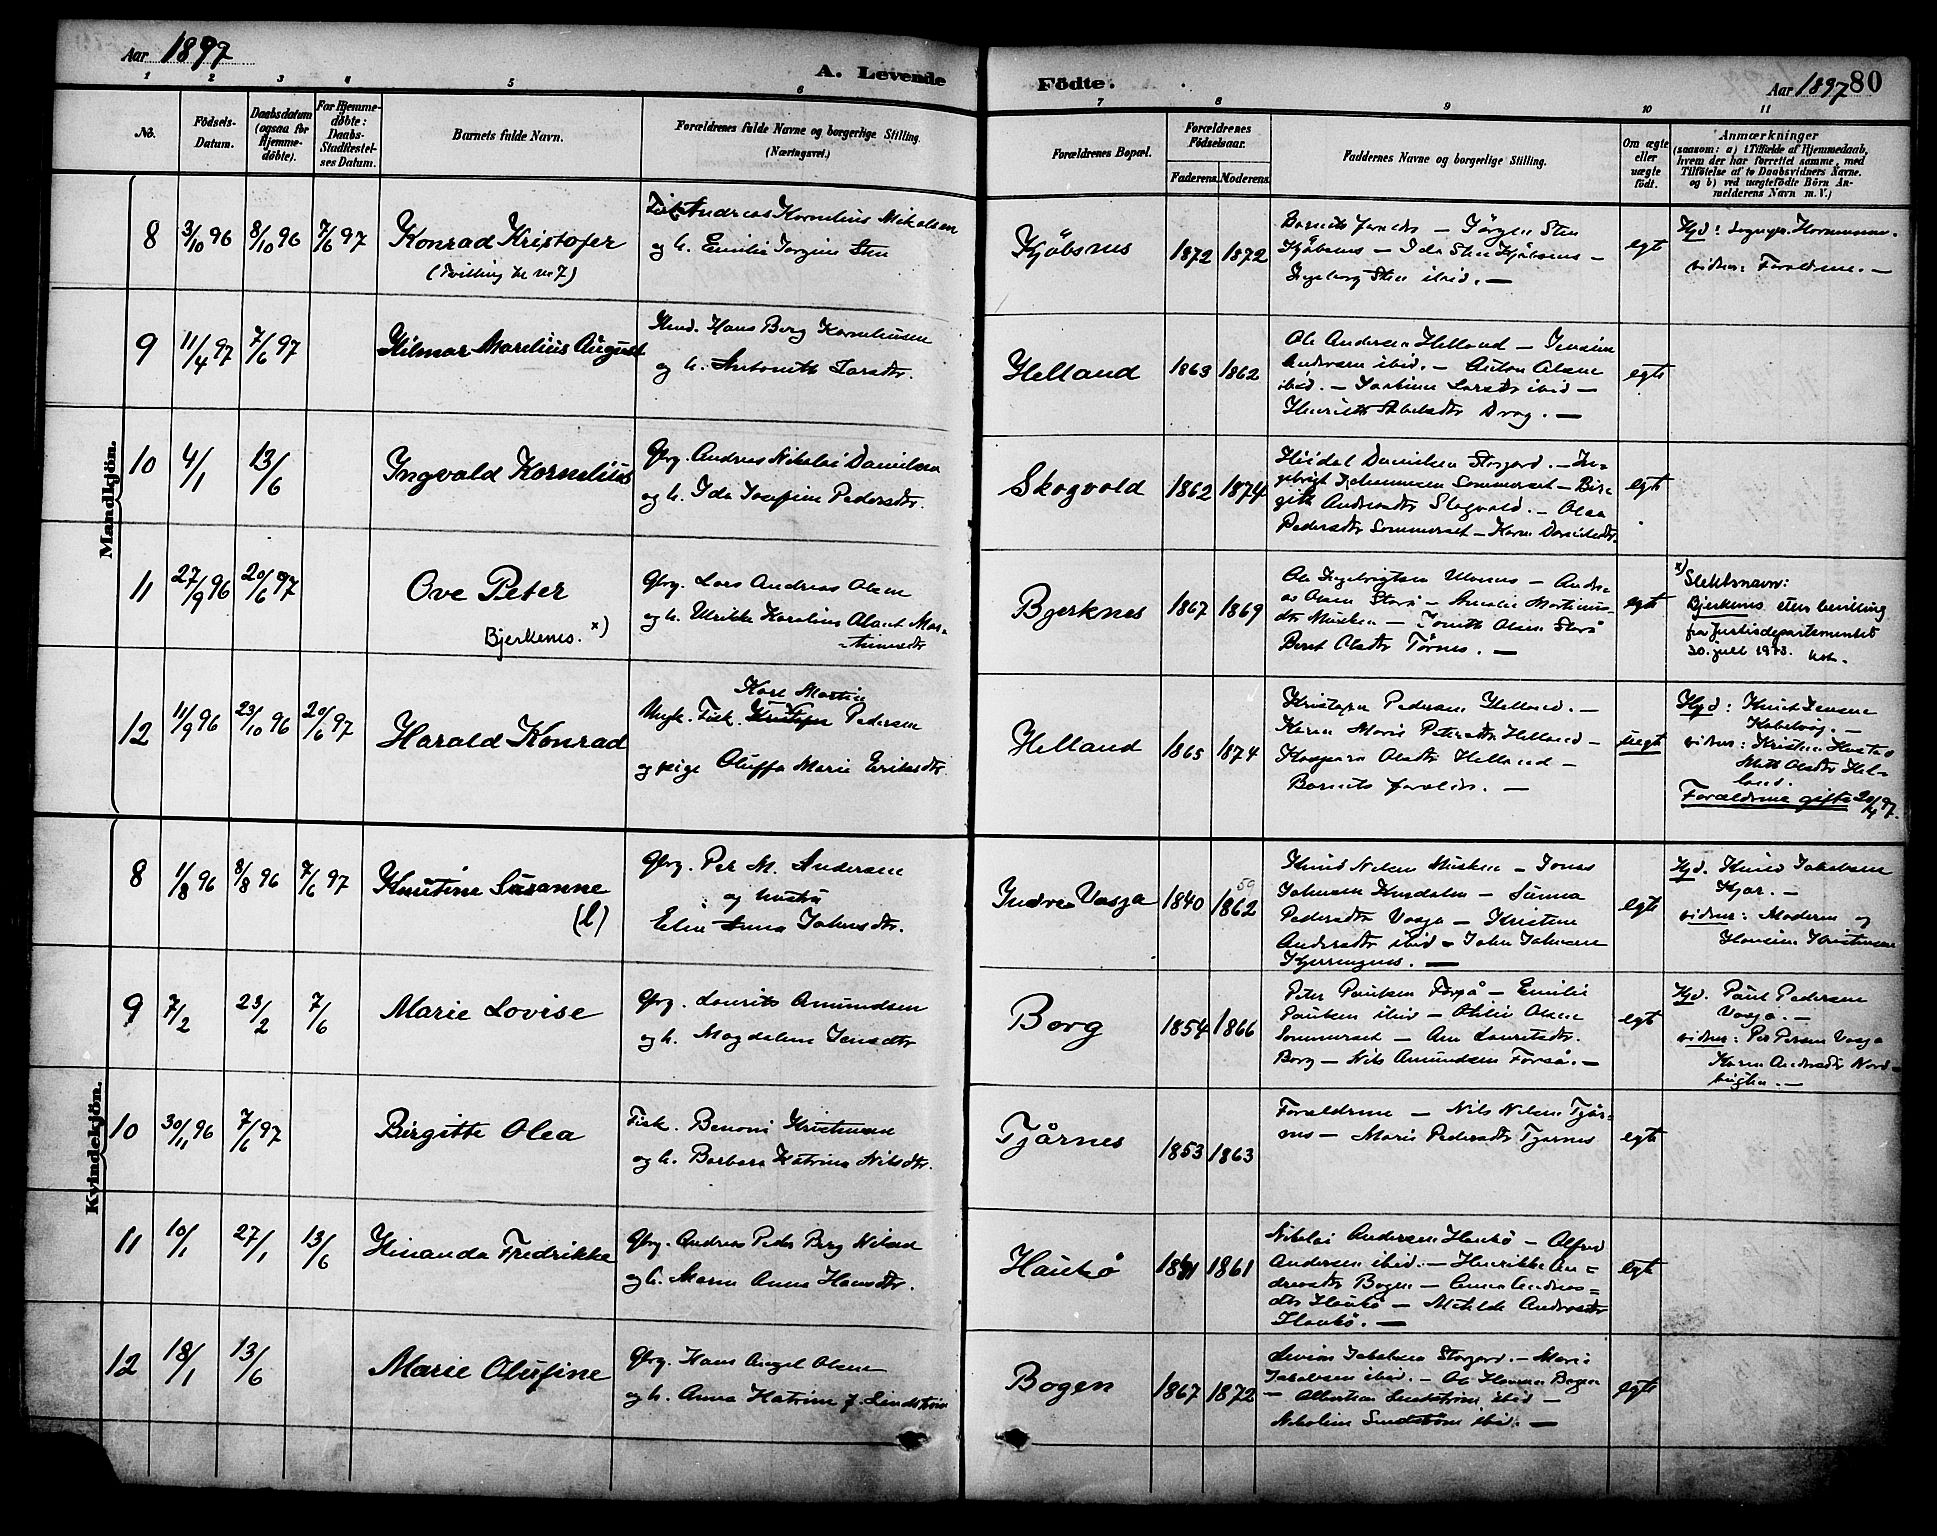 Aar 1897
A. Levende
Födte.
Aar 1897 80
1 2 3 4 5 6 7 8 9 10 11
No.
Födsels-
Datum.
Daabsdatum
(ogsaa for
Hjemme-
döbte).
For Hjemme-
döbte:
Daabs-
Stadfæstel-
ses Datum.
Barnets fulde Navn.
Forældrenes fulde Navne og borgerlige Stilling.
(Næringsvei.)
Forældrenes Bopæl.
Forældrenes
Födselsaar.
Faderens. Moderens.
Faddernes Navne og borgerlige Stilling.
Om ægte
eller
uægte
födt.
Anmærkninger
(saasom: a) i Tilfælde af Hjemmedaab,
hvem der har forrettet samme, med
Tilföielse af to Daabsvidners Navne.
og b) ved uægtefödte Börn An-
melderens Navn m. V.)
Mandkjön.
8 3/10 96 8/10 96 7/6 97
Konrad Kristofer
(Tvilling til no 7)
Fisk. Andreas Kornelius Mikalsen
og h. Emilie Jørgine Sten
Kjøbsnes
1872 1872
Barnets forældre - Jørgen Sten
Kjøbsnes - Ida Sten Kjøbsnes -
Ingeborg Sten ibid. -
egt
Hjd: Sognepr.
vidner: Forældrene. -
9 11/4 97 7/6 97
Hilmar Marelius August
Hans Berg Kornelius­sen
og h. Antonette Larsdtr.
Helland
1863 1862
Ole Andersen Helland -
Andersen ibid. - Anton Olsen
ibid. - Larsdtr ibid -
Henriette Abelsdtr Drag. -
egt
10 4/1 13/6
Ingvald Kornelius
Gbrg. Andreas Nikolai Danielsen
og h. Ida Josefine Pedersdtr.
Skogvold
1862 1874
Danielsen Storjord. - In-
gebrigt Johannesen Sommerset - Bir-
gitte Andreasdtr Skogvold. - Olea
Pedersdtr Sommerset - Karen Danielsdtr.
egt
11 27/9 96 20/6 97
Ove Peter
Bjerkenes. x)
Gbrg. Lars Andreas Olsen
og h. Ulrikke Karoline Olant Mar-
-tinusdtr
Bjerknes
1867 1869
Ole Ingebrigtsen Ulvnes - Andre-
as Olsen Storø - Amalie Martinus-
dtr - Olsen Storø
Beret Olsdtr Tørnes. -
egt
x) Slektsnavn:
Bjerkenes etter bevilling
fra Justisdepartementet
30. juli 1973.
12 11/9 96 23/10 96 20/6 97
Harald Konrad
Karl Martin
Ungk. Fisk. Kristofer Pedersen
og pige Oluffa Marie Eriksdtr.
Helland
1865 1874
Kristofer Pedersen Helland. -
Karen Marie Petersdtr Helland -
Kaspara Olsdtr Helland -
Barnets forældre. -
uegt
Hjd: Knut Jensen
Kabelvåg. -
vidner: Kristen
Mette Olsdtr Hel-
land.
Forældrene gifte 20/4 97.
Kvindekjön.
8 1/8 96 8/8 96 7/6 97
Knutine Susanne
(l)
Gbrg. Per M. Andersen
og hustru
Elen Anna Johnsdtr.
Indre Vasja
1840 59 1862
Knud Nilsen - Jonas
Johnsen - Sunna
Pedersdtr Vasja - Kristine
Andersdtr ibid - John Johnsen
Kjerringnes. -
egt
Hjd. Knud Jakobsen
Kjær. -
vidner: Moderen og
Kristensen
9 7/2 23/2 7/6
Marie Lovise
Gbrg. Laurits Amundsen
og h. Magdalena Jensdtr
Borg
1854 1866
Peter Paulsen Forså - Emilie
Paulsen ibid - Otilie Olsen
Sommerset - Ane Lauritsdtr.
Borg - Nils Amundsen Forså. -
egt
Hjd. Paul Pedersen
Vasja. -
vidner: Per Persen Vasja
Karen Andersdtr Nord-
bugten. -
10 30/11 96 7/6 97
Birgitte Olea
Fisk. Benoni Kristensen
og h. Barbara Katrina Nilsdtr.
Tjårnes
1853 1863
Forældrene - Nils Nilsen Tjår-
nes - Marie Pedersdtr Tjårnes
egt
11 10/1 27/1 13/6
Hinanda Fredrikke
Gbrg. Andreas Peder Berg Nilsen
og h. Maren Anna Hansdtr.
Haukø
1861
Nikolai Andersen Haukø - Alfred
Andersen ibid. - Henrikke An-
dreasdtr Bogen - Anna Andreas-
dtr Haukø - Matilde Andreasdtr
Haukø. -
egt
12 18/1 13/6
Marie Olufine
Gbrg. Hans Angel Olsen
og h. Anna Katrine f. Lindstrøm
Bogen
1867 1872
Jakobsen Storjord. - Marie
Jakobsen ibid. - Ole Hansen Bogen
- Albertine Lindstrøm ibid -
Nikoline Lindstrøm ibid. -
egt